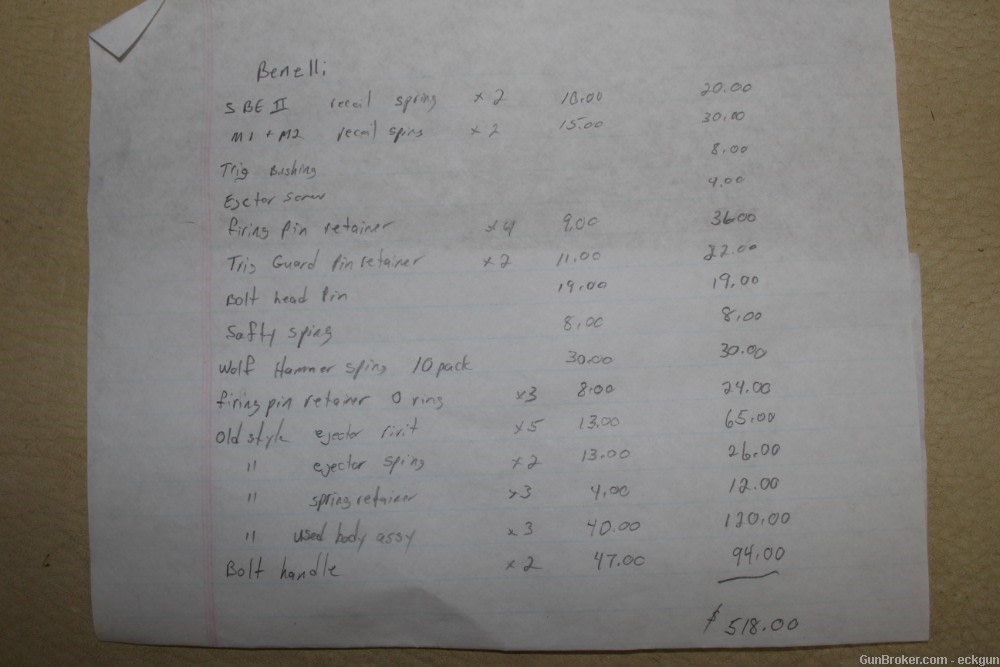 Benelli
SBE II recoil spring x 2 10.00 20.00
M1 + M2 recoil spring x 2 15.00 30.00
Trig Bushing 8.00
Ejector Screw 4.00
firing pin retainer x 4 9.00 36.00
Trig Guard Pin retainer x 2 11.00 22.00
Bolt head Pin 19.00 19.00
Safty spring 8.00 8.00
Wolf Hammer spring 10 pack 30.00 30.00
firing pin retainer O ring x3 8.00 24.00
Old style ejector rivit x5 13.00 65.00
" ejector spring x2 13.00 26.00
" spring retainer x3 4.00 12.00
" used body assy x3 40.00 120.00
Bolt handle x 2 47.00 94.00
$ 518.00
GunBroker.com - eckgun